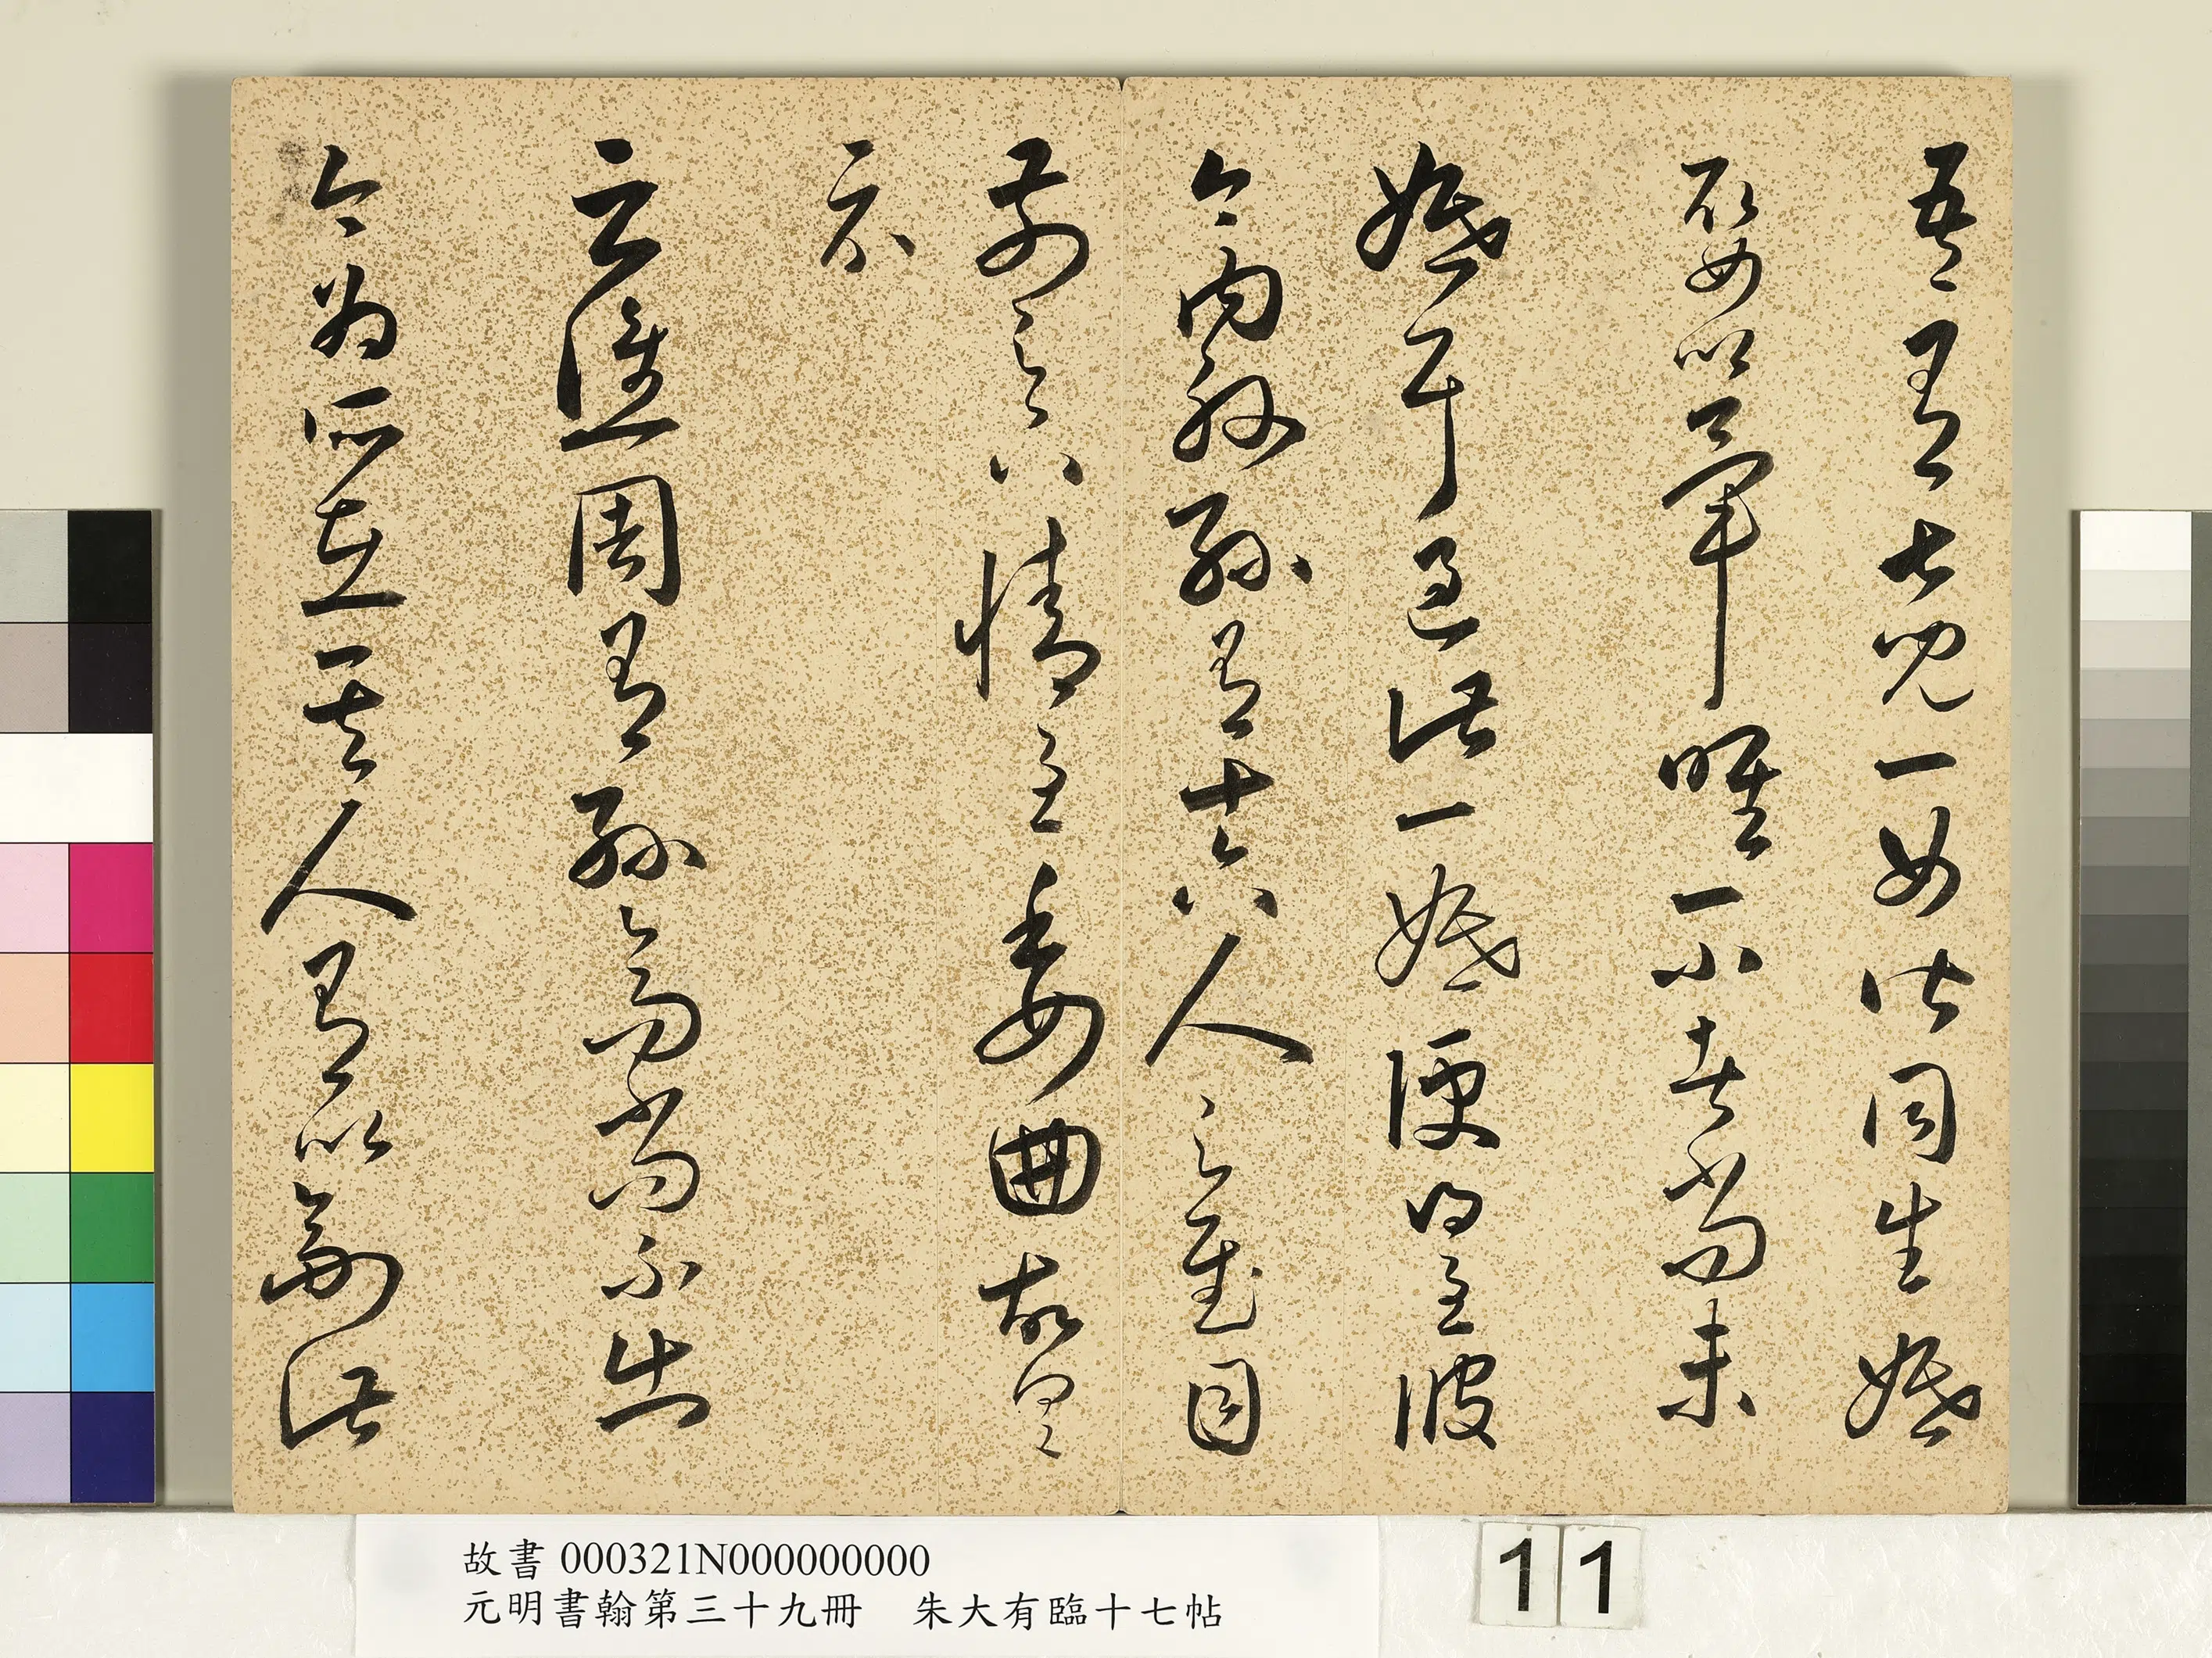 吾有七兒一女皆同生婚
娶以畢唯一小者尚未
婚耳過此一婚便得至彼
今內外孫有十六人足慰目
前足下情至委曲故具
示
云譙周有孫高尚不出
今為所在其人有以副此
故書 000321N000000000
元明書翰第三十九冊 朱大有臨十七帖
11